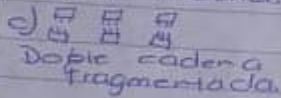 c)
Doble cadena
fragmentada.